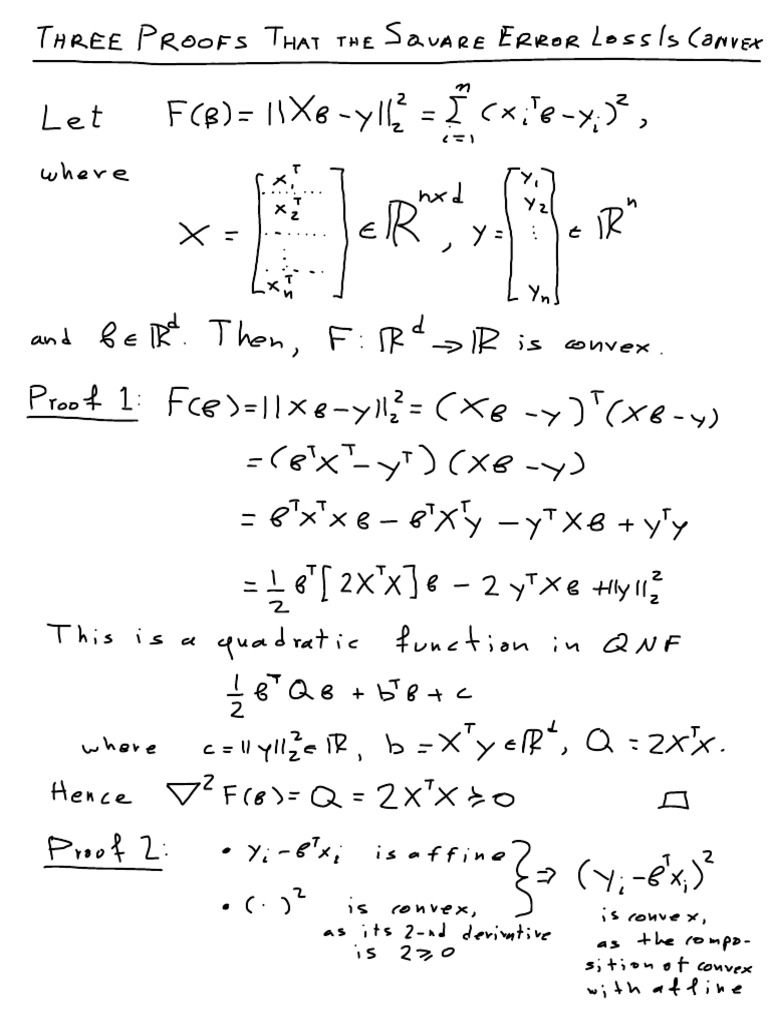 THREE PROOFS THAT THE SQUARE ERROR LOSS IS CONVEX
Let F(β) = ||Xβ - y||₂² = Σᵢ₌₁ⁿ (xᵢᵀβ - yᵢ)²,
where
X = [x₁ᵀ x₂ᵀ ⋮ xₙᵀ] ∈ ℝⁿˣᵈ, y = [y₁ y₂ ⋮ yₙ] ∈ ℝⁿ
and β ∈ ℝᵈ. Then, F: ℝᵈ → ℝ is convex.
Proof 1: F(β) = ||Xβ - y||₂² = (Xβ - y)ᵀ(Xβ - y)
= (βᵀXᵀ - yᵀ)(Xβ - y)
= βᵀXᵀXβ - βᵀXᵀy - yᵀXβ + yᵀy
= 1/2 βᵀ[2XᵀX]β - 2yᵀXβ + ||y||₂²
This is a quadratic function in QNF
1/2 βᵀQβ + bᵀβ + c
where c = ||y||₂² ∈ ℝ, b = Xᵀy ∈ ℝᵈ, Q = 2XᵀX.
Hence ∇²F(β) = Q = 2XᵀX ≽ 0 □
Proof 2: • yᵢ - βᵀxᵢ is affine } ⇒ (yᵢ - βᵀxᵢ)²
• (·)² is convex,
as its 2-nd derivative
is 2 ⩾ 0
is convex,
as the compo-
sition of convex
with affine